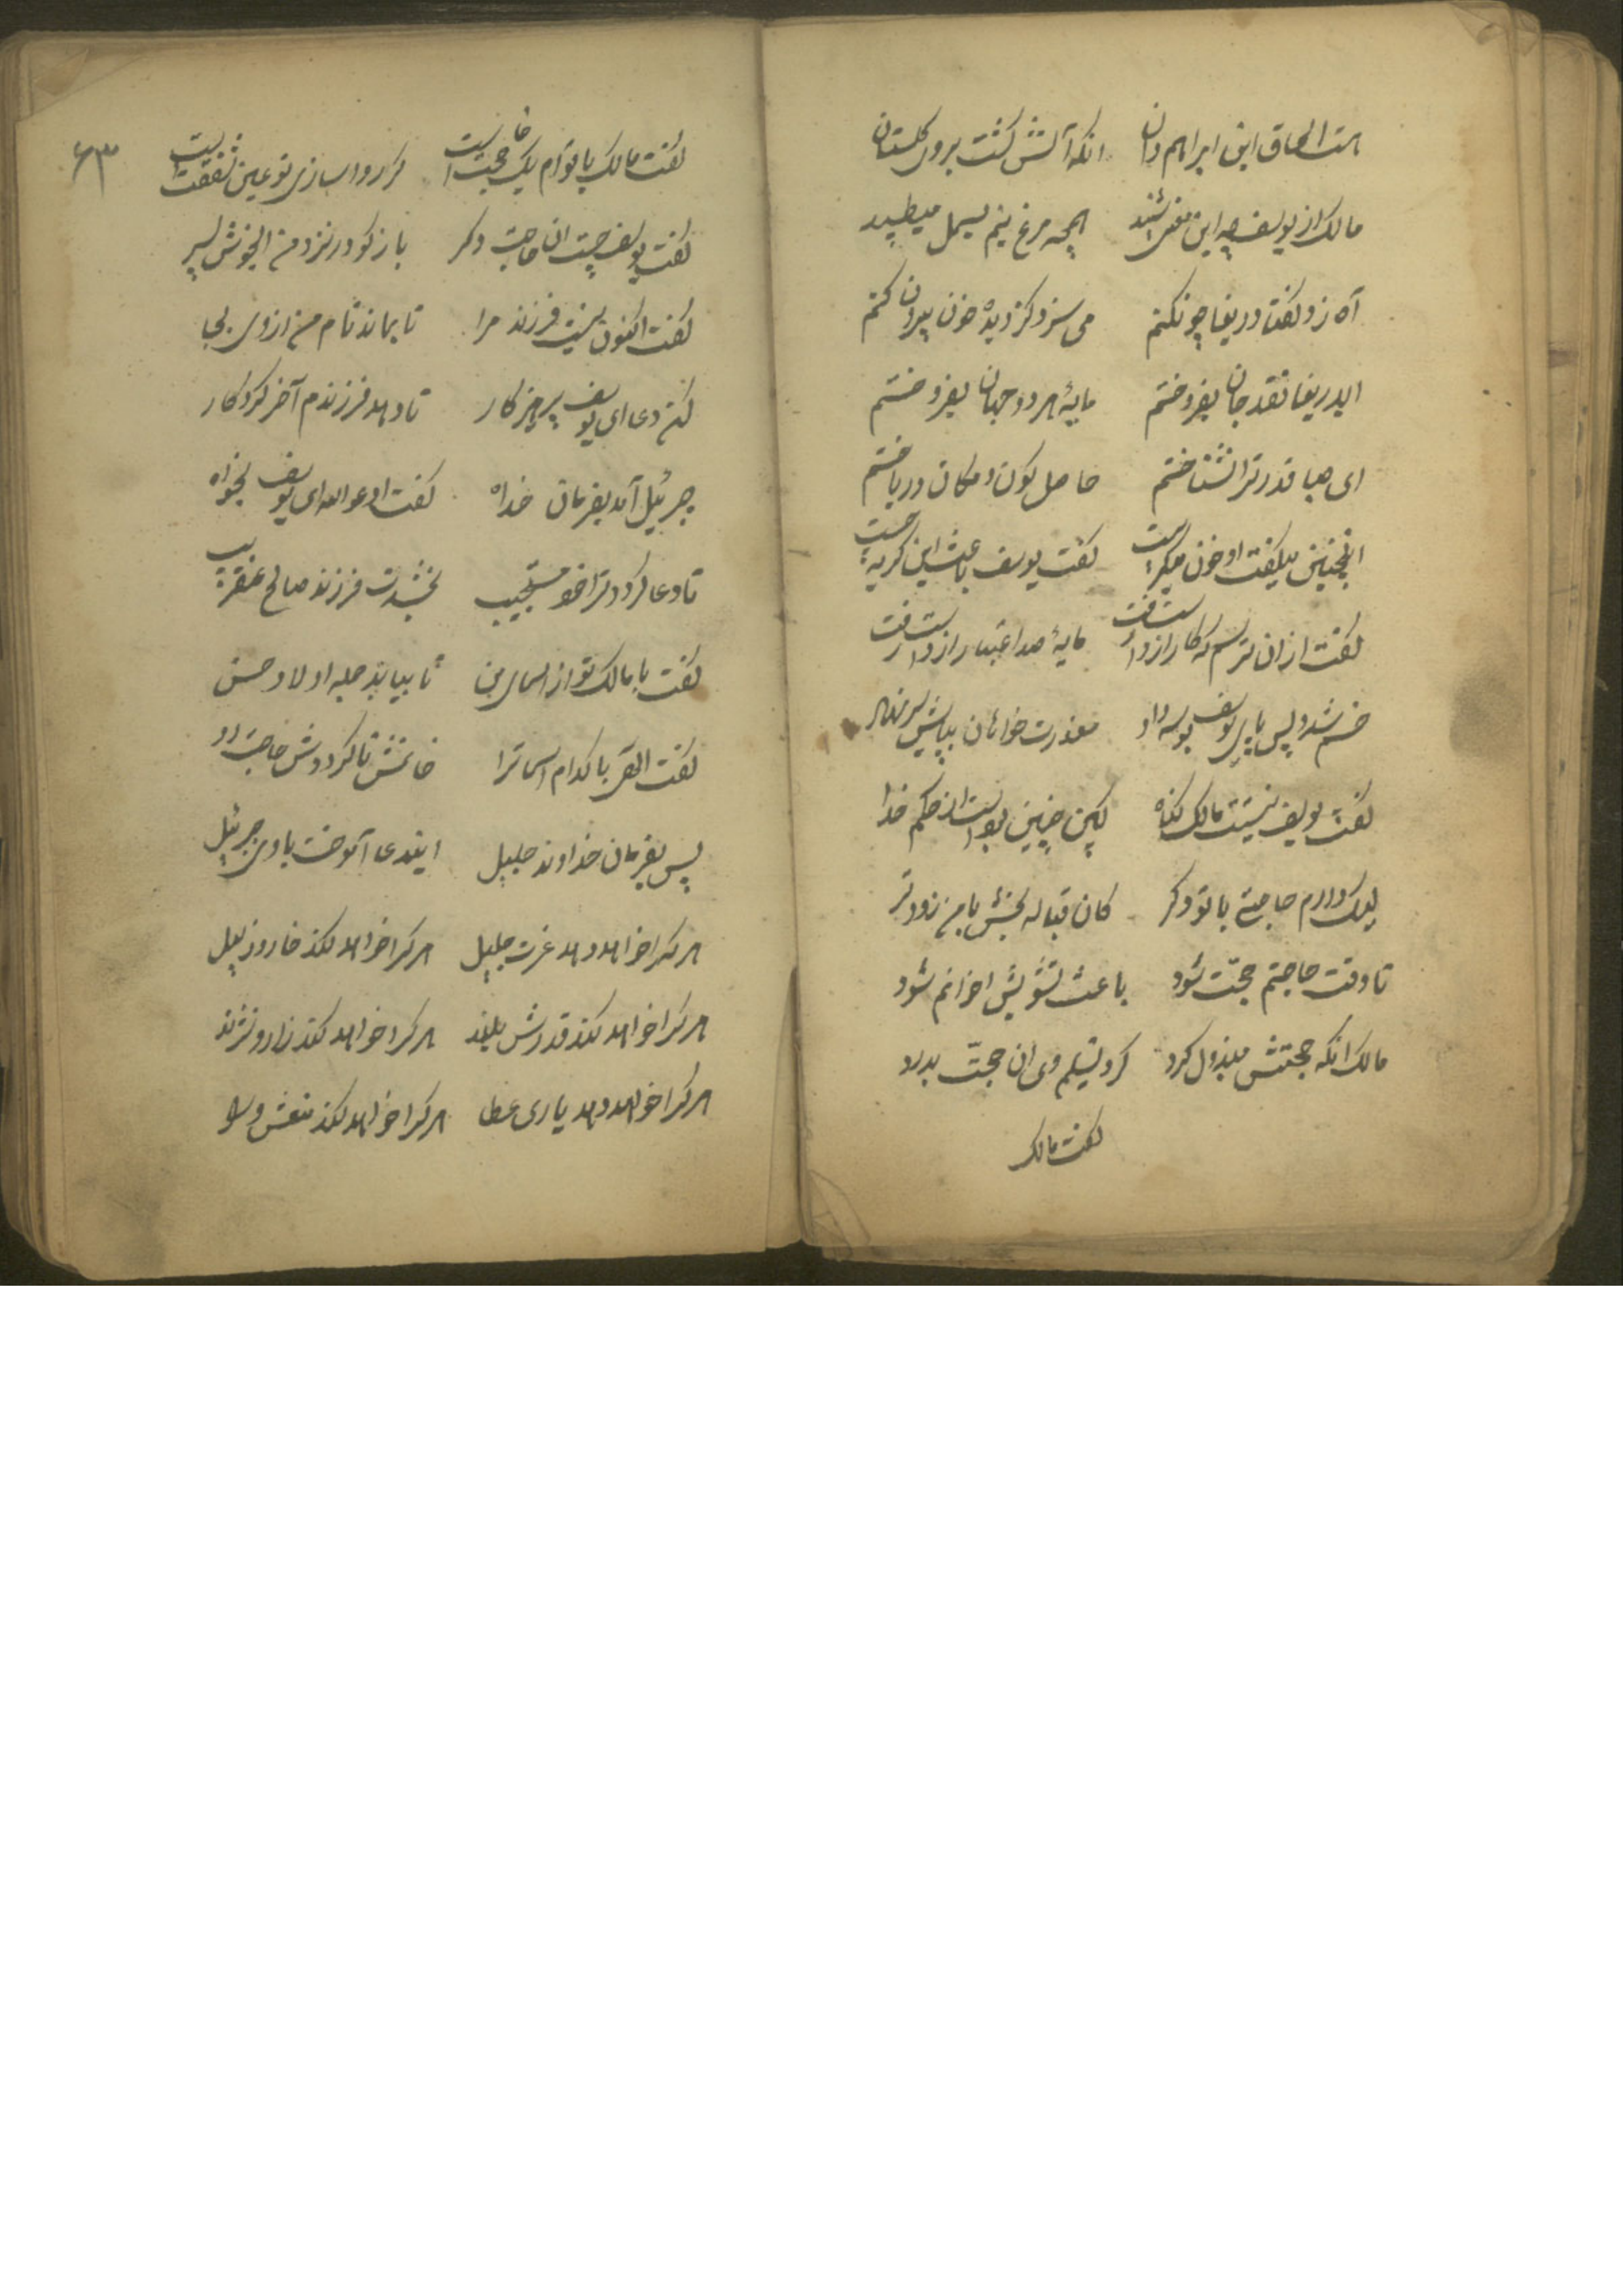 هست اسحاق ابن ابراهیم دان انکه آتش کشت بروی کلستان
مالک از یوسف چه این معنی شنید همچه مرغ نیم بسمل میطپید
آه زد کفتا دریغا چونکنم می سزد کز دیده خون بیرون کنم
ایدریغا نقد جان بفروختم مایهٔ هر دو جهان بفروختم
ای صبا قدر ترا نشناختم حاصل کون و مکان در باختم
اینچنین میکفت او خون میکریست کفت یوسف باعث این کریه چیست
کفت از ان ترسم که کار از دست رفت مایهٔ صد اعتبار از دست رفت
خم شد و پس پای یوسف بوسه داد معذرت خواهان بپایش سر نهاد
کفت یوسف نیست مالک کناه لیکن چنین بود است از حکم خدا
لیک دارم حاجتی با تو دکر کان قباله بخش با من زودتر
تا وقت حاجتم حجّت شود باعث تشویش احزانم شود
مالک انکه حجتش مبذول کرد کرد تسلیم وی ان حجّت بدرد
کفت مالک
۶۳
کفت مالک با تو ام یک حاجت است کر روا سازی تو عین شفقت است
کفت یوسف چیست ان حاجت دکر باز کو در نزد من ایخوش پسر
کفت اکنون نیست فرزند مرا تا بماند نام من از وی بجا
کن دعا ای یوسف پرهیزکار تا دهد فرزندم آخر کردکار
جبرئیل آمد بفرمان خداه کفت ادعو الله ای یوسف بخواه
تا دعا کردد ترا خود مستجیب بخشدت فرزند صالح عنقریب
کفت با مالک تو از اسمای من تا بیابد جمله اولاد حسن
کفت القی با کدام اسما ترا خانمش تا کرددش حاجت روا
پس بفرمان خداوند جلیل ایندعا آموخت با وی جبرئیل
هر کرا خواهد دهد عزت جلیل هر کرا خواهد کند خار و ذلیل
هر کرا خواهد کند قدرش بلند هر کرا خواهد کند زار و نژند
هر کرا خواهد دهد یاری عطا هر کرا خواهد کند منعش و لا